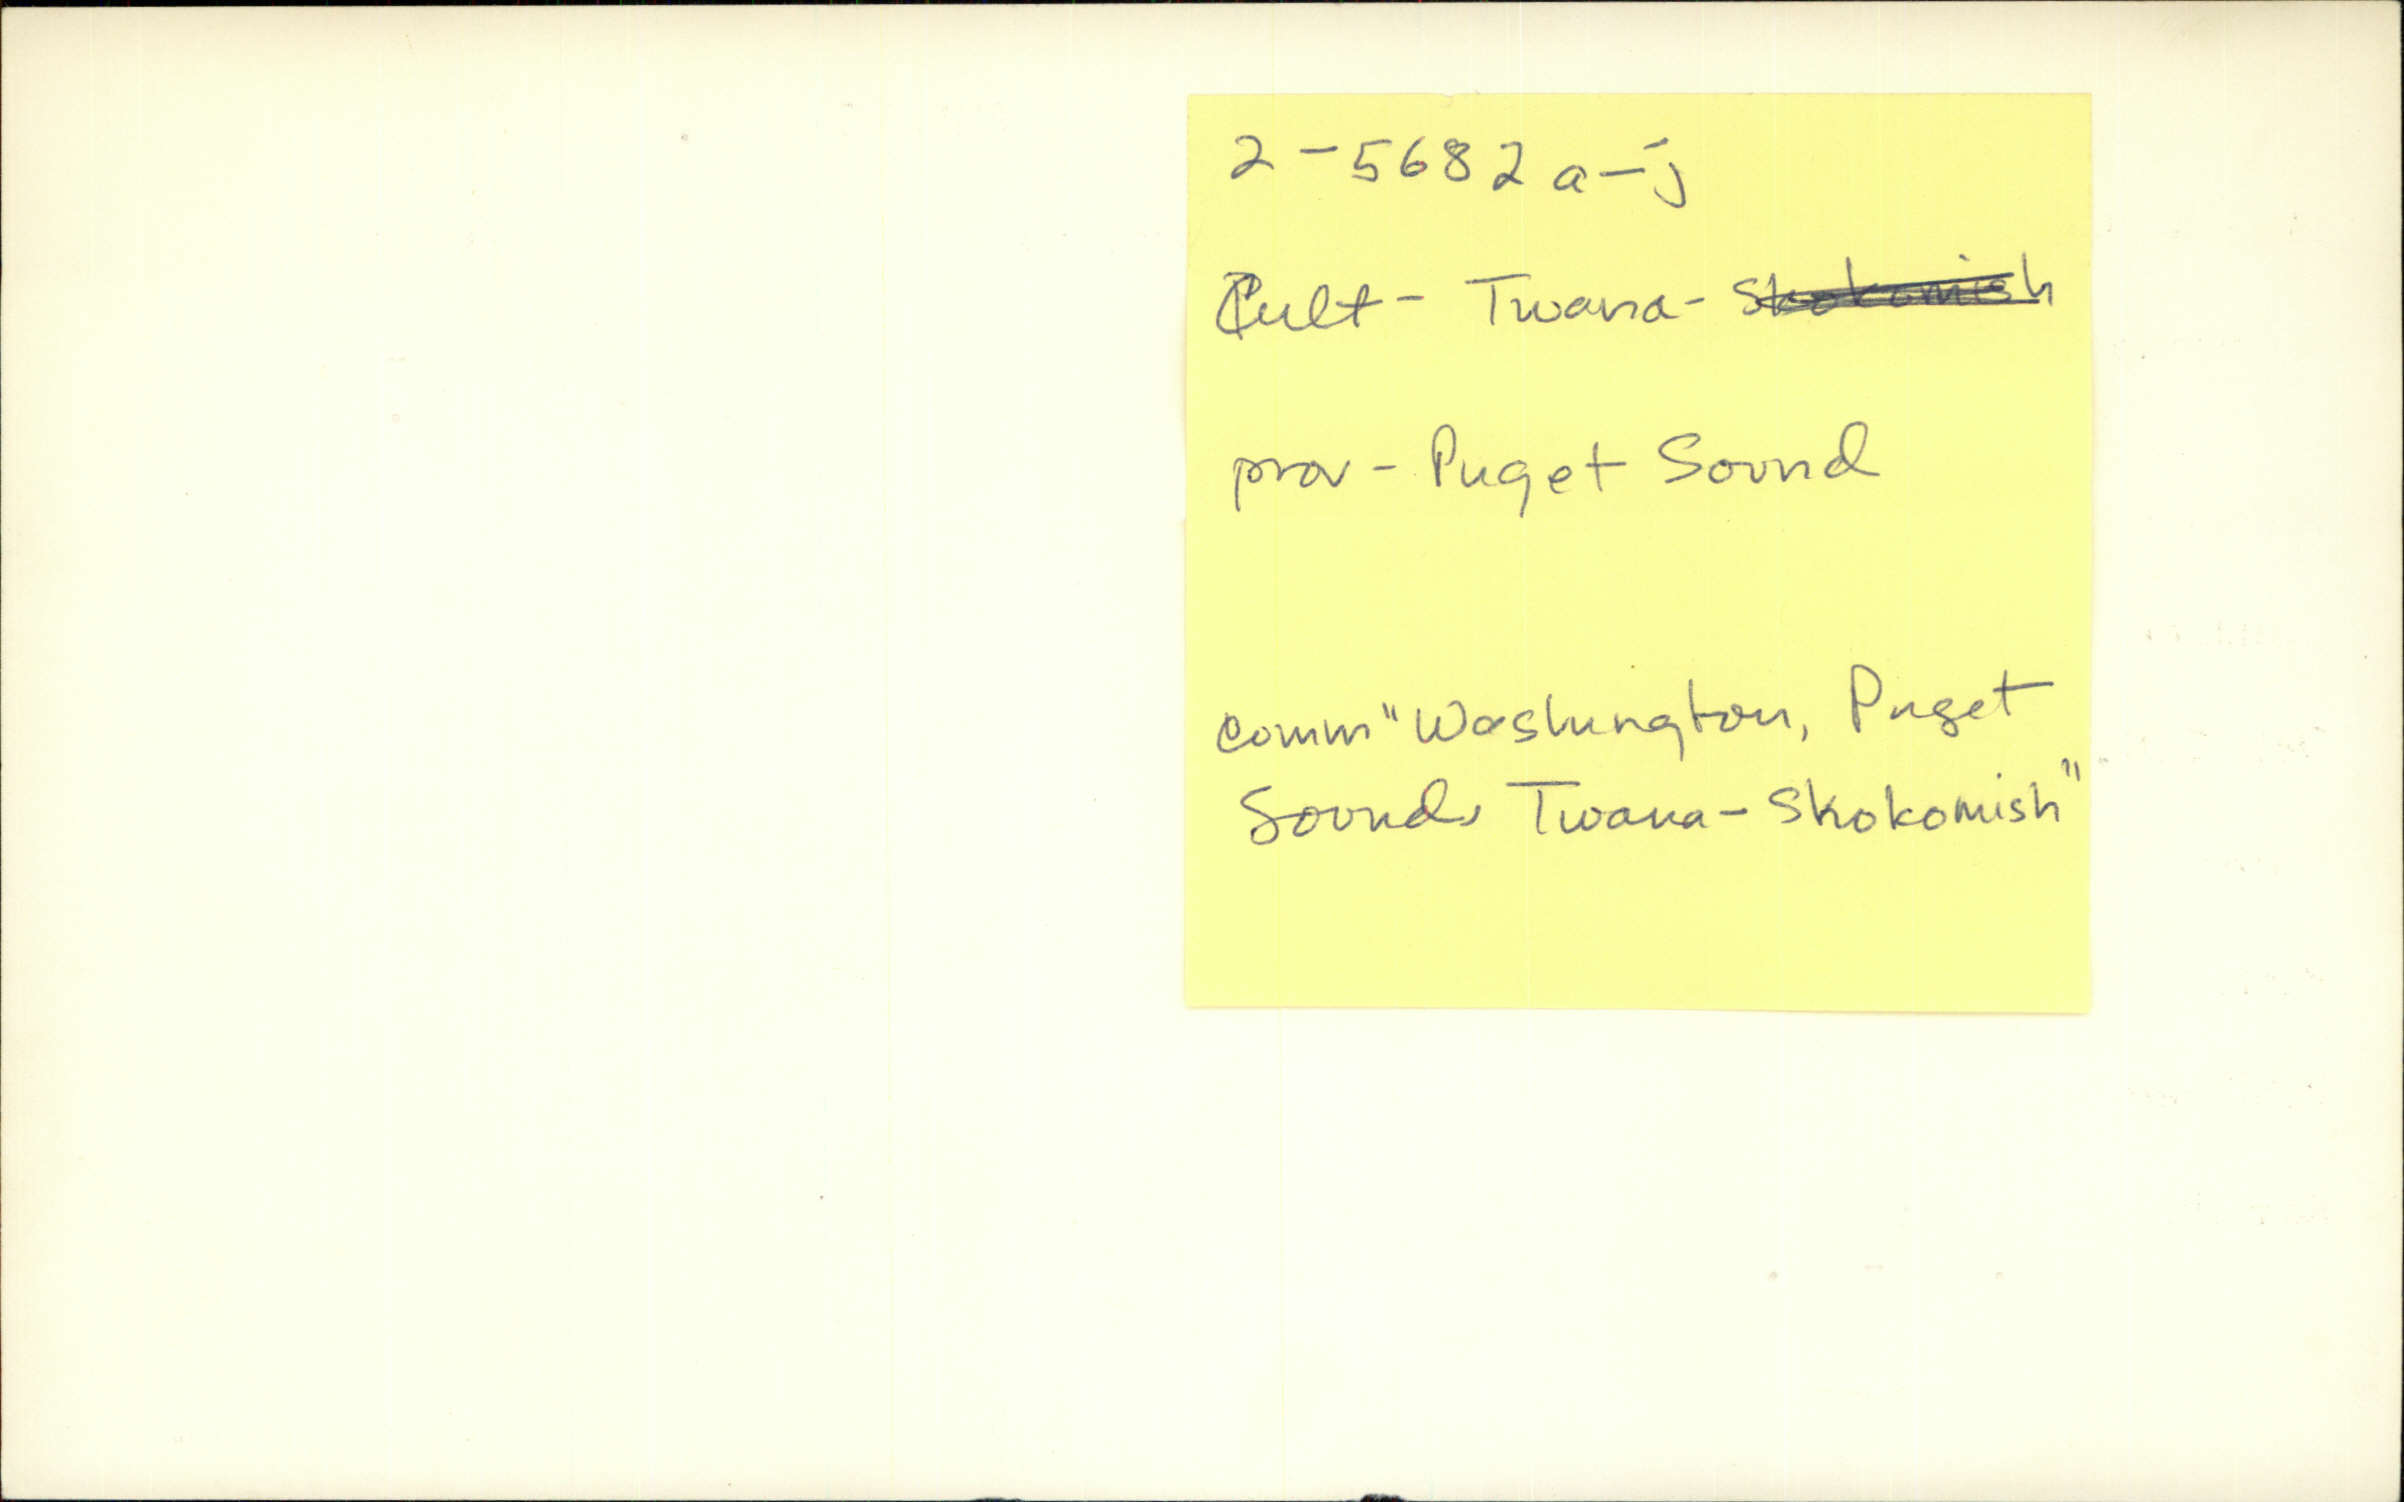 2-5682 a-j
Cult - Twana - Skokomish
prov - Puget Sound
comm "Washington, Puget
Sound, Twana - Skokomish"